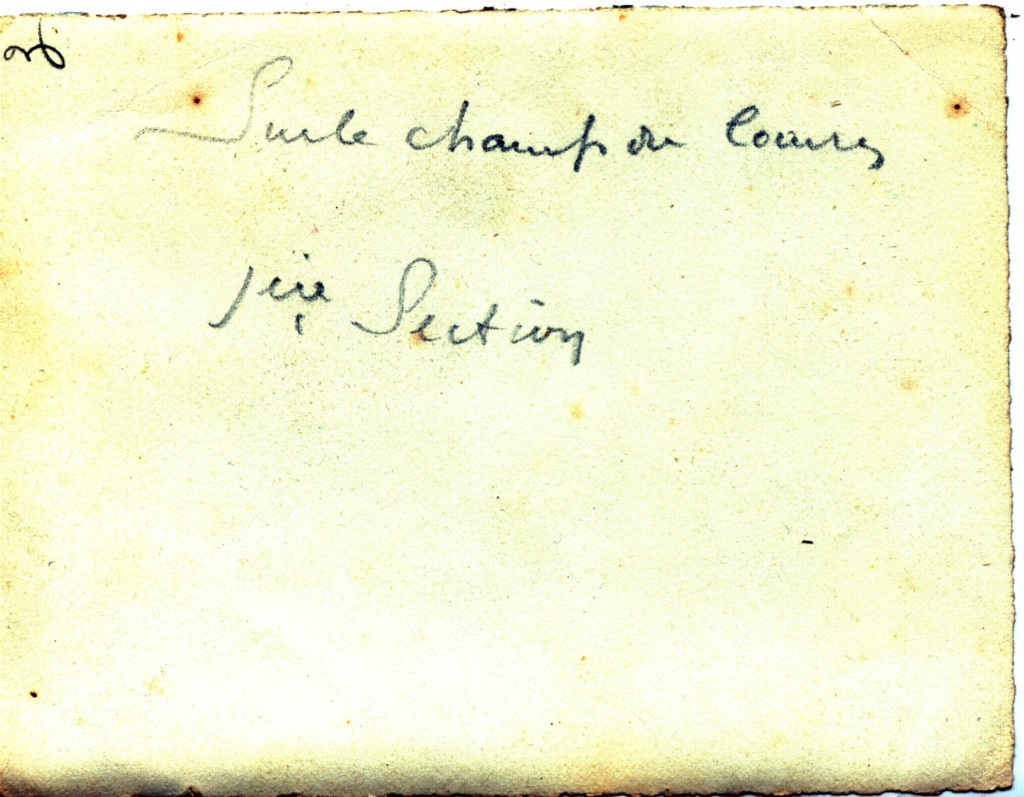 Sur le champ de Courses
1ère Section